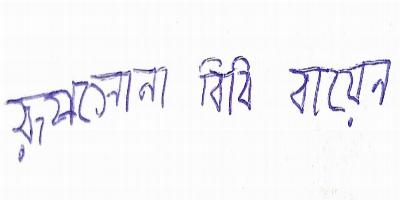 রুপসোনা বিবি বায়েন